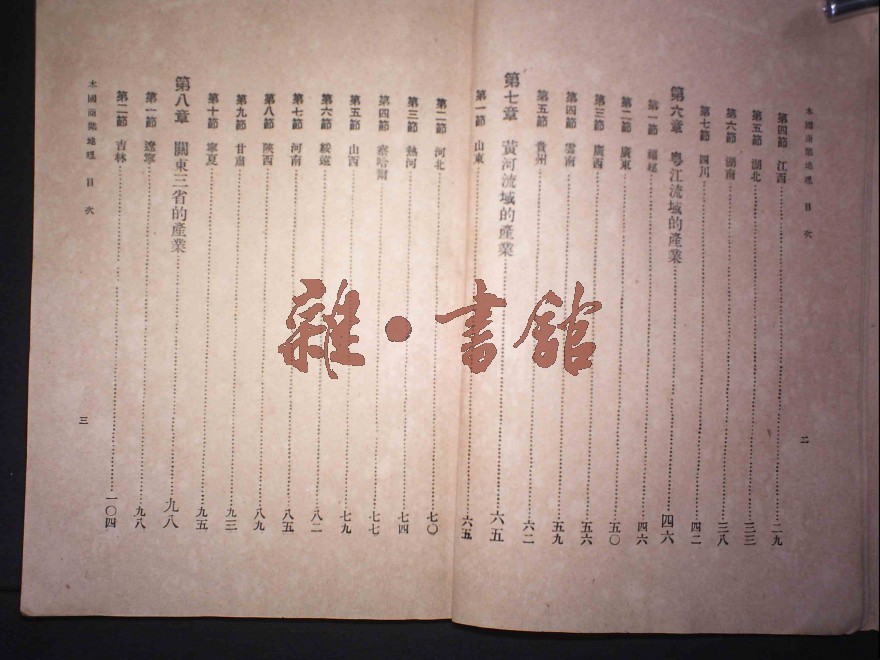 本國商業地理 目次
第四節 江西 二九
第五節 湖北 三三
第六節 湖南 三八
第七節 四川 四二
第六章 粵江流域的產業 四六
第一節 福建 四六
第二節 廣東 五〇
第三節 廣西 五六
第四節 雲南 五九
第五節 貴州 六二
第七章 黃河流域的產業 六五
第一節 山東 六五
二
第二節 河北 七〇
第三節 熱河 七四
第四節 察哈爾 七七
第五節 山西 七九
第六節 綏遠 八二
第七節 河南 八五
第八節 陝西 八九
第九節 甘肅 九三
第十節 寧夏 九五
第八章 關東三省的產業 九八
第一節 遼寧 九八
第二節 吉林 一〇四
本國商業地理 目次
三
雜·書館